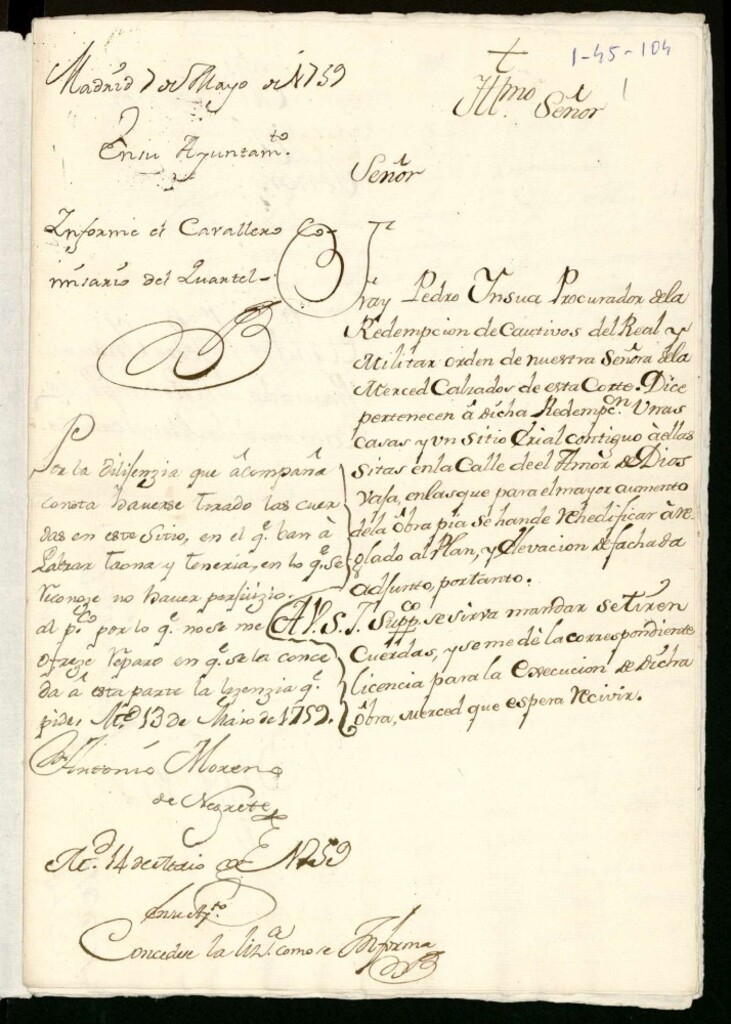 1-45-104
1
Madrid 7 de Mayo de 1759
En su Ayuntam.to
Informe el Cavallero Co-
misario del Quartel
Yll.mo Señor
Señor
Fray Pedro Ynsua Procurador dela
Redempcion de Cautivos del Real y
Militar orden de nuestra Señora dela
Merced Calzados de esta Corte. Dice
pertenecen â dicha Redempc.on Unas
casas y vn sitio Erial contiguo à ellas
Sitas en la Calle de el Amor de Dios
Vaja, en las que para el mayor aumento
dela ôbra pia se han de Rehedificar àre-
glado al Plan, y Elevacion de fachada
adjunto, por tanto.
A V.S.I. Supp.co se sirva mandar se tiren
Cuerdas, y se me dè la correspondiente
licencia para la execucion de dicha
ôbra, merced que espera Recivir.
Por la dilijenzia que âcompaña
consta haverse tirado las cuer
das en este Sitio, en el q.e ban â
Labrar Taona y Teneria, en lo q.e se
Reconoze no haver perjuizio
al p.co por lo q.e no se me
ofreze Reparo en q.e se la conce
da â esta parte la lizenzia q.e
pide, M.d 13 de Maio de 1759.
Antonio Moreno
de Negrete
M.d 14 de Maio de 1759
En su Ay.to
Concedese la liz.a como se Informa